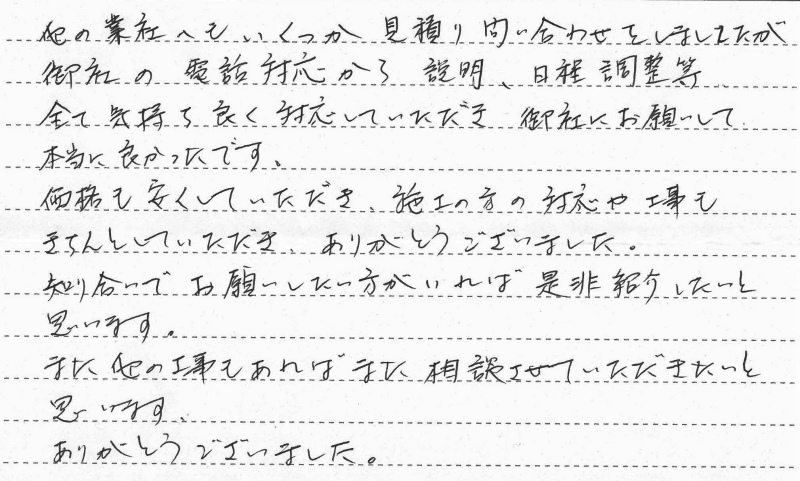 他の業社へもいくつか見積り問い合わせをしましたが
御社の電話対応から説明、日程調整等
全て気持ち良く対応していただき御社にお願いして
本当に良かったです。
価格も安くしていただき、施工の方の対応や工事も
きちんとしていただき、ありがとうございました。
知り合いでお願いしたい方がいれば是非紹介したいと
思います。
また他の工事もあればまた相談させていただきたいと
思います。
ありがとうございました。